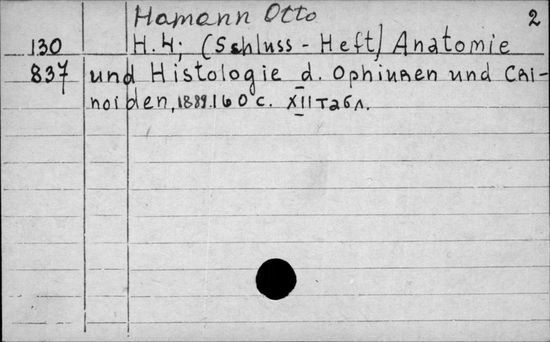 Hamann Otto 2
130 H.4; (Schluss-Heft) Anatomie
837 und Histologie d. Ophiuren und Cri-
noiden, 1889. 160 c. XII Табл.